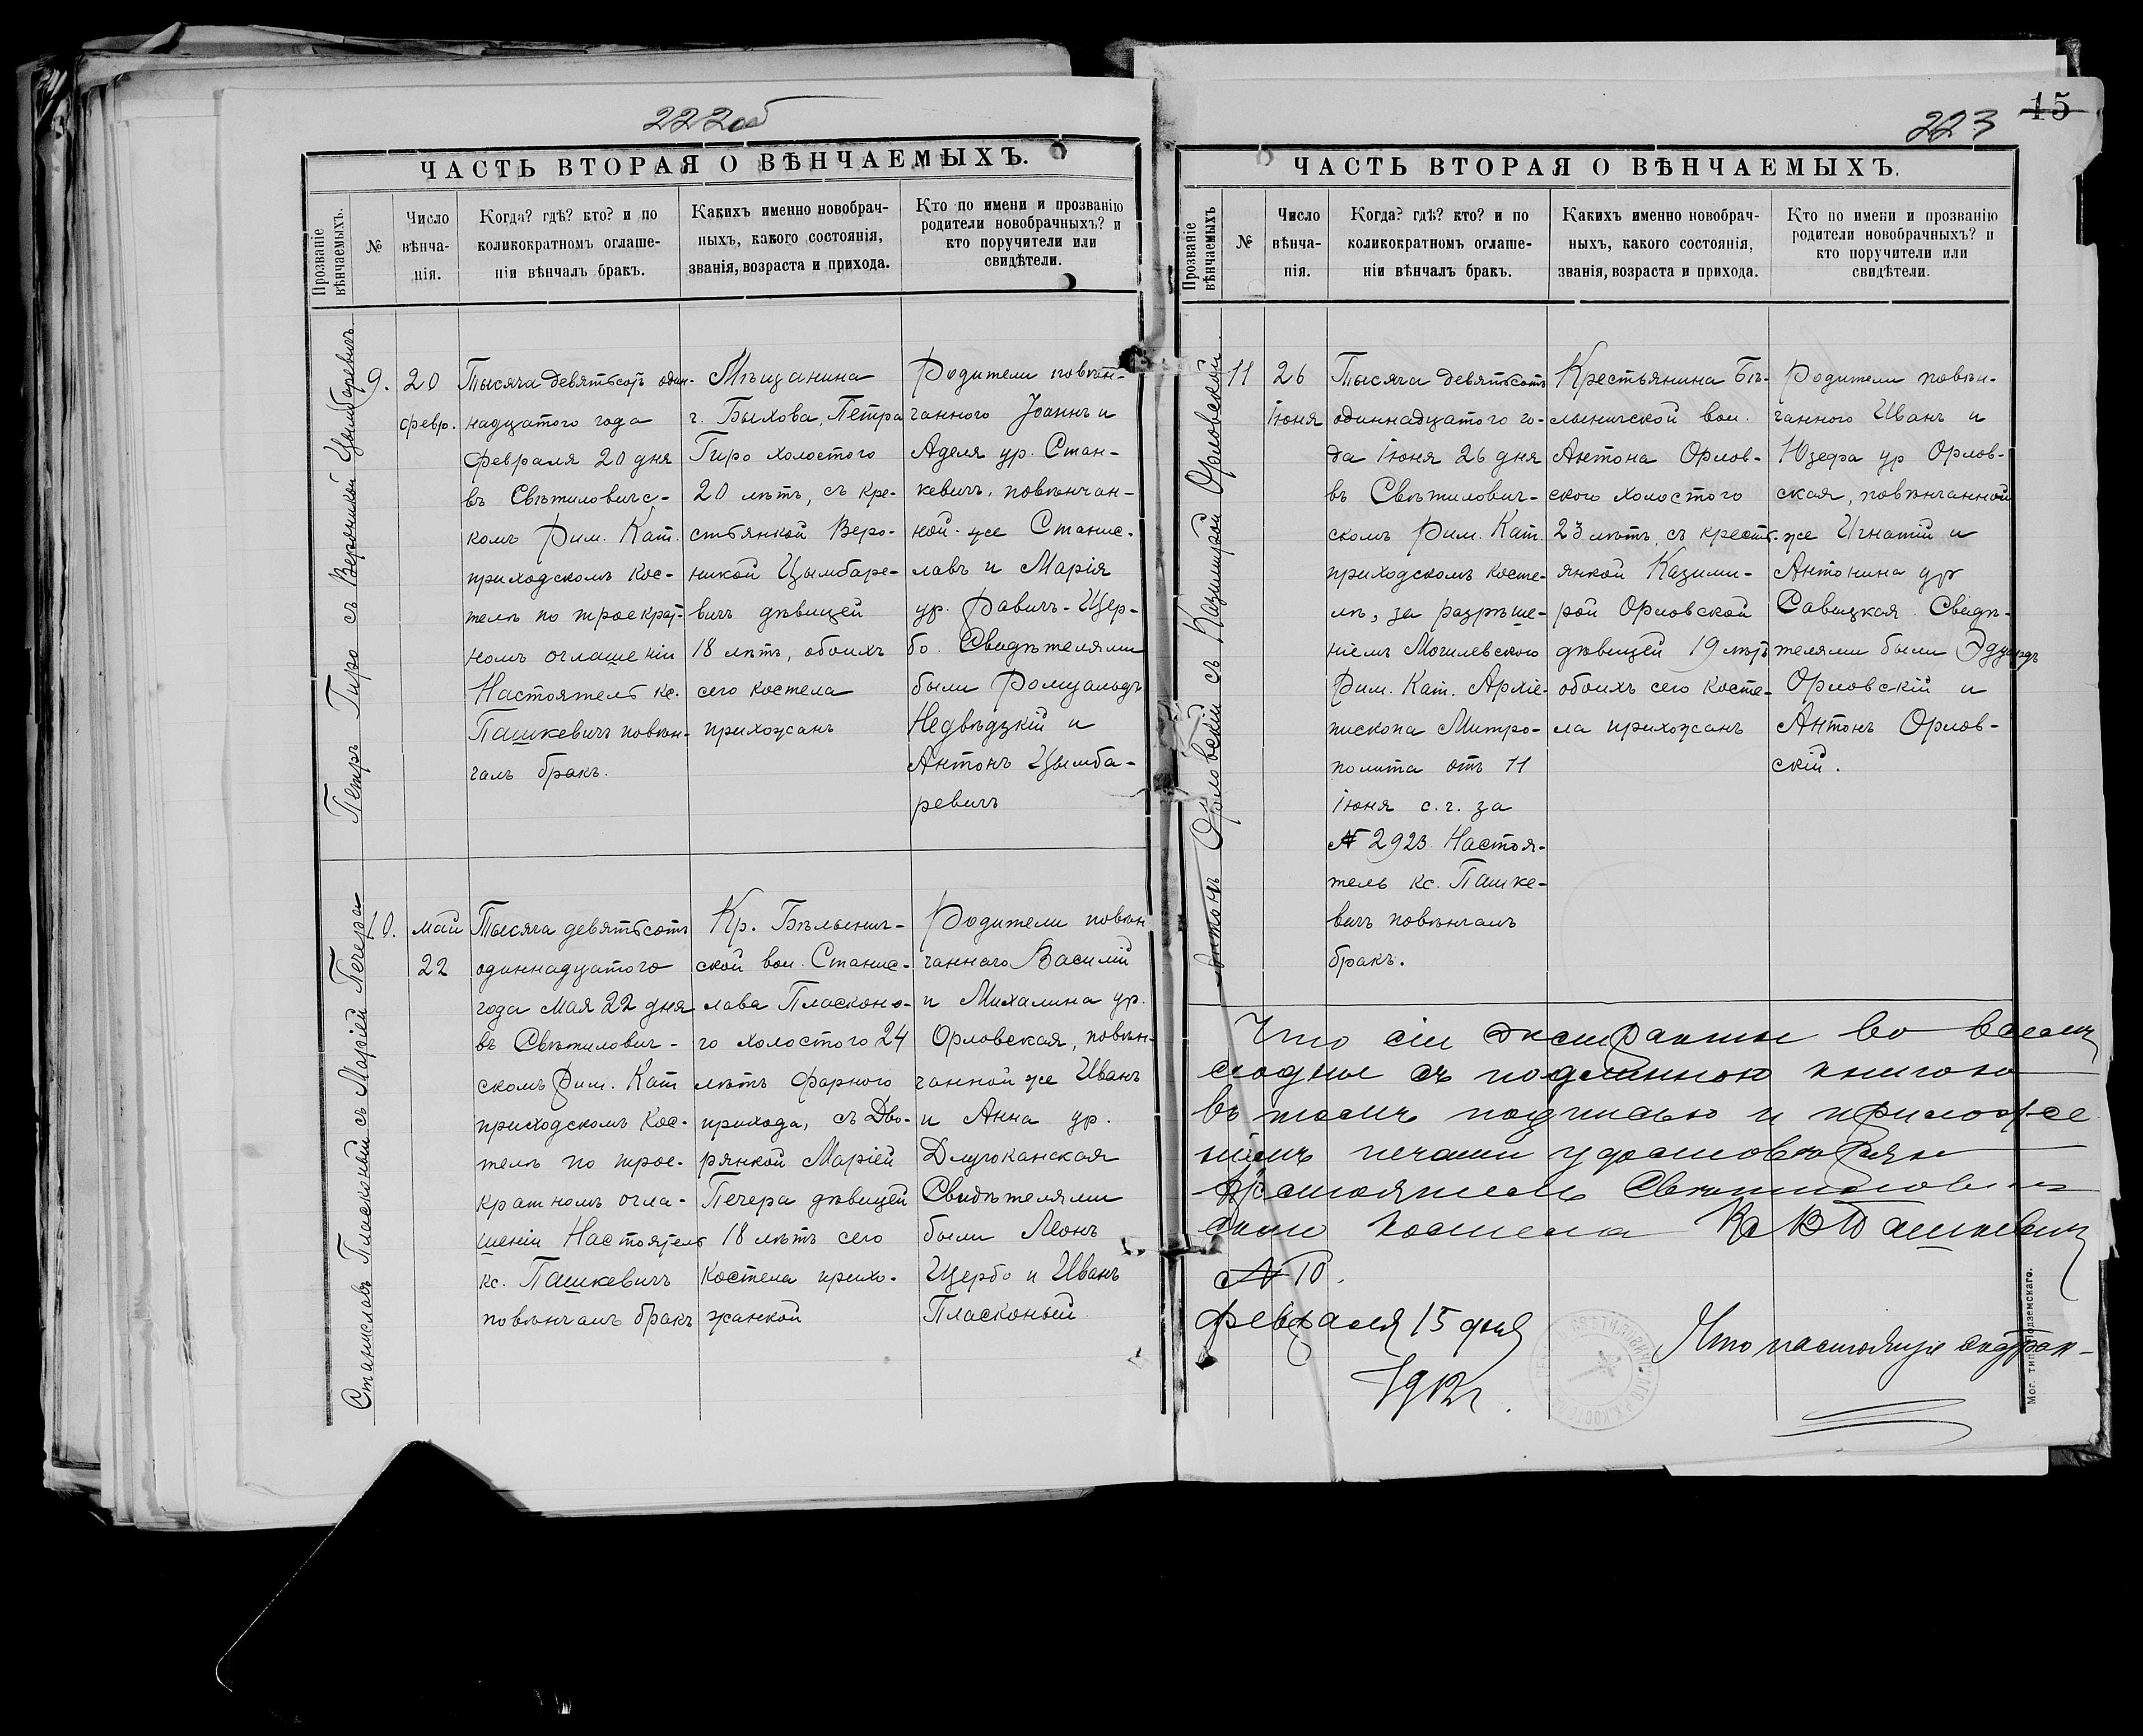 222об
ЧАСТЬ ВТОРАЯ О ВѢНЧАЕМЫХЪ.
Прозваніе вѣнчаемыхъ.
№
Число
вѣнча-
нія.
Когда? гдѣ? кто? и по
коликократномъ оглаше-
ніи вѣнчалъ бракъ.
Какихъ именно новобрач-
ныхъ, какого состоянія,
званія, возраста и прихода.
Кто по имени и прозванію
родители новобрачныхъ? и
кто поручители или
свидѣтели.
Петръ Гиро съ Вероникой Цымбаревичъ
9.
20
февр.
Тысяча девятьсотъ один-
надцатого года
Февраля 20 дня
въ Свѣтиловичс-
комъ Рим. Кат.
приходскомъ Кос-
телѣ по троекрат-
номъ оглашеніи
Настоятель кс.
Пашкевичъ повѣн-
чалъ бракъ.
Мѣщанина
г. Быхова, Петра
Гиро холостого
20 лѣтъ, съ кре-
стьянкой Веро-
никой Цымбаре-
вичъ дѣвицей
18 лѣтъ, обоихъ
сего костела
прихожанъ
Родители повѣн-
чанного Іоаннъ и
Аделя ур. Стан-
кевичъ, повѣнчан-
ной-же Станис-
лавъ и Марія
ур. Равичъ-Щер-
бо. Свидѣтелями
были Ромуальдъ
Недвѣдзкій и
Антонъ Цымба-
ревичъ
Станиславъ Пласконый съ Маріей Печера
10.
май
22
Тысяча девятьсотъ
одиннадцатого
года Мая 22 дня
въ Свѣтилович-
скомъ Рим. Кат
приходскомъ Кос-
телѣ по трое-
кратномъ огла-
шеніи Настоятель
кс. Пашкевичъ
повѣнчалъ бракъ
Кр. Бѣлынич-
ской вол. Станис-
лава Пласконо-
го холостого 24
лѣтъ Фарного
прихода, съ Дво-
рянкой Маріей
Печера дѣвицей
18 лѣтъ сего
Костела прихо-
жанкой
Родители повѣн
чаннаго Василій
и Михалина ур.
Орловская, повѣн-
чанной же Иванъ
и Анна ур.
Длугоканская
Свидѣтелями
были Леонъ
Щербо и Иванъ
Пласконый
15
223
ЧАСТЬ ВТОРАЯ О ВѢНЧАЕМЫХЪ.
Прозваніе вѣнчаемыхъ
№
Число
вѣнча-
нія.
Когда? гдѣ? кто? и по
коликократномъ оглаше-
ніи вѣнчалъ бракъ.
Какихъ именно новобрач-
ныхъ, какого состоянія,
званія, возраста и прихода.
Кто по имени и прозванію
родители новобрачныхъ? и
кто поручители или
свидѣтели.
Антонъ Орловскій съ Казимирой Орловской
11
26
Іюня
Тысяча девятьсотъ
одиннадцатого го-
да Іюня 26 дня
въ Свѣтилович-
скомъ Рим. Кат.
приходскомъ косте-
лѣ, за разрѣше-
ніемъ Могилевского
Рим. Кат. Архіе-
пископа Митро-
полита отъ 11
Іюня с.г. за
№ 2923. Настоя-
тель кс. Пашке-
вичъ повѣнчалъ
бракъ.
Крестьянина Бѣ-
лыничской вол.
Антона Орлов-
ского холостого
23 лѣтъ, съ крестъ-
янкой Казими-
рой Орловской
дѣвицей 19 лѣтъ
обоихъ сего косте-
ла прихожанъ
Родители повѣн-
чанного Иванъ и
Юзефа ур Орлов-
ская, повѣнчанной
же Игнатій и
Антонина ур
Савицкая. Свидѣ-
телями были Эдуардъ
Орловскій и
Антонъ Орлов-
скій.
Что сіи экстракты во всемъ
сходны съ подлинною книгою
въ томъ подписью и приложе
ніемъ печати удостовѣряю
Настоятель Свѣтилович
скаго Костела Кс В Пашкевичъ
№ 10.
Февраля 15 дня
1912 г.
Что настоящіе экстрак-
Мог. тип. Подземскаго.